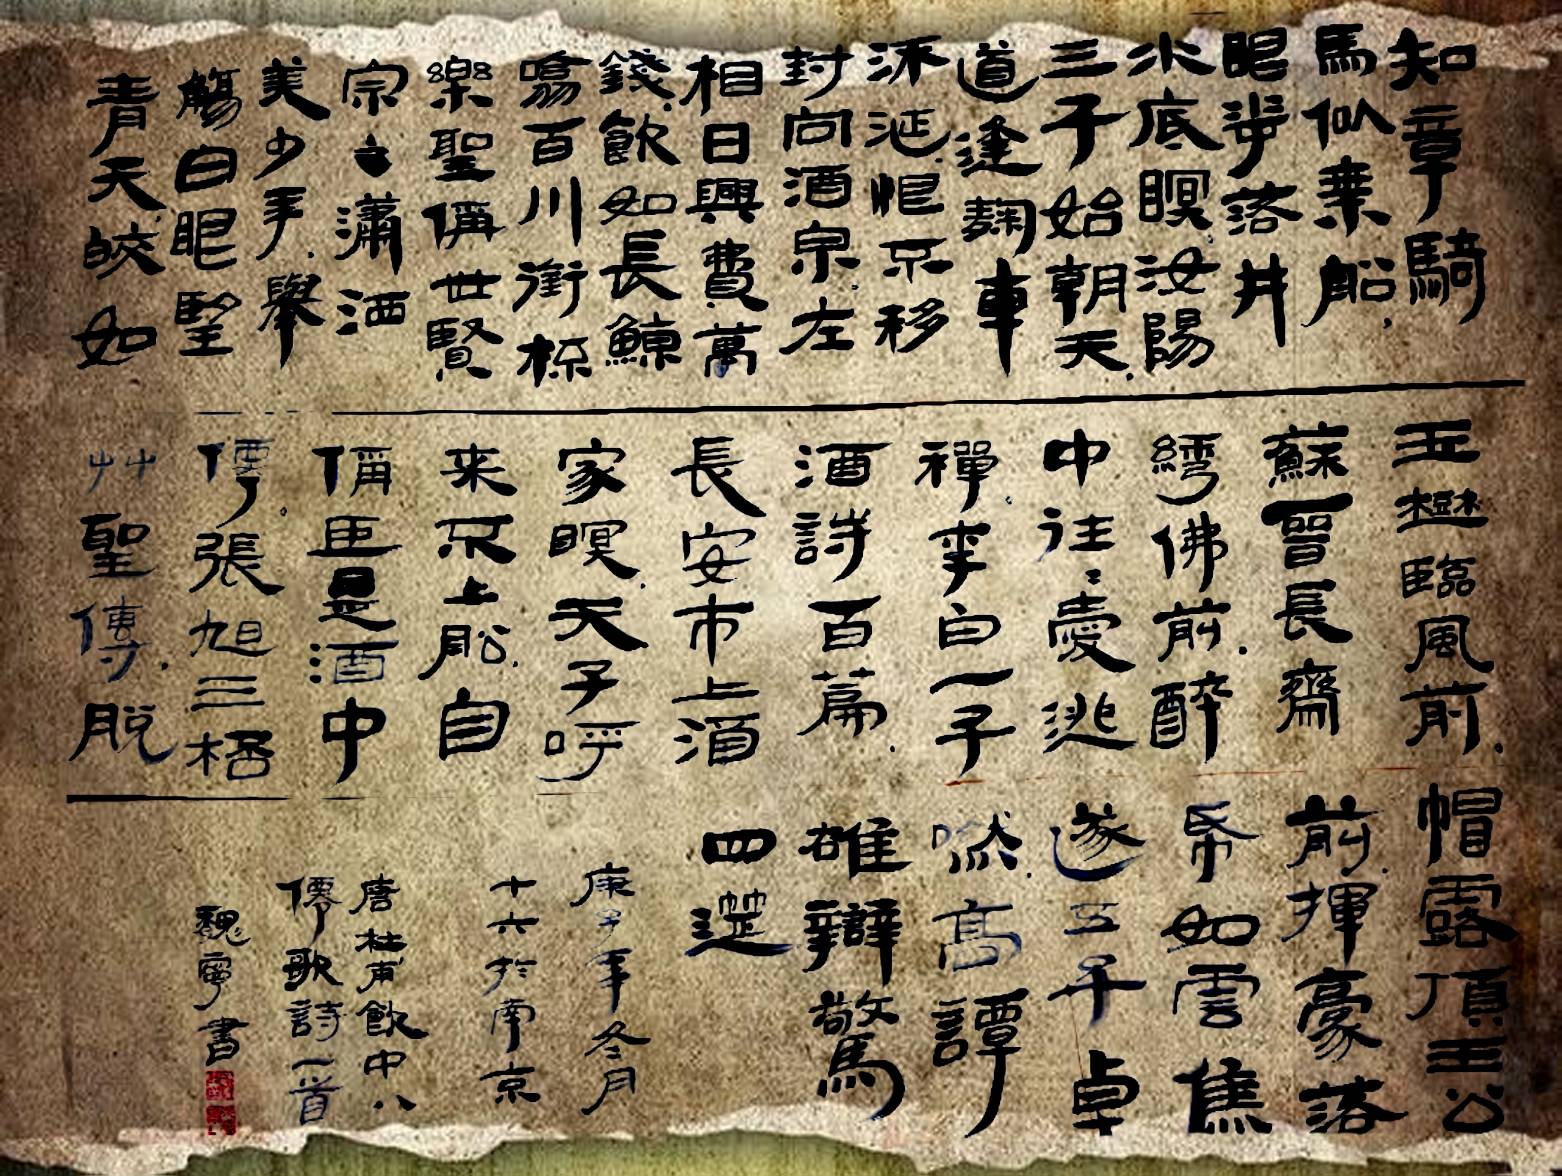 知章騎
馬似乗船
眼花落井
水底瞑汝陽
三斗始朝天
道逢麹車
流涎恨不移
封向酒泉左
相日興費萬
錢飲如長鯨
噏百川銜桮
樂聖稱世賢
宗之瀟洒
美少年舉
觴白眼望
青天皎如
玉樹臨風前
蘇晉長齋
繡佛前醉
中往〻愛逃
禪李白一斗
酒詩百篇
長安市上酒
家瞑天子呼
来不上船自
稱臣是酒中
僊張旭三桮
艸聖傳脱
帽露頂王公
前揮豪落
帋如雲焦
遂五斗卓
然高譚
雄辯驚
四筵
庚子年冬月
十六於南京
唐杜甫飲中八
僊歌詩一首
魏寧書